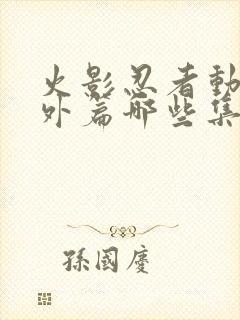 火影忍者動
外篇哪些集
孫國慶